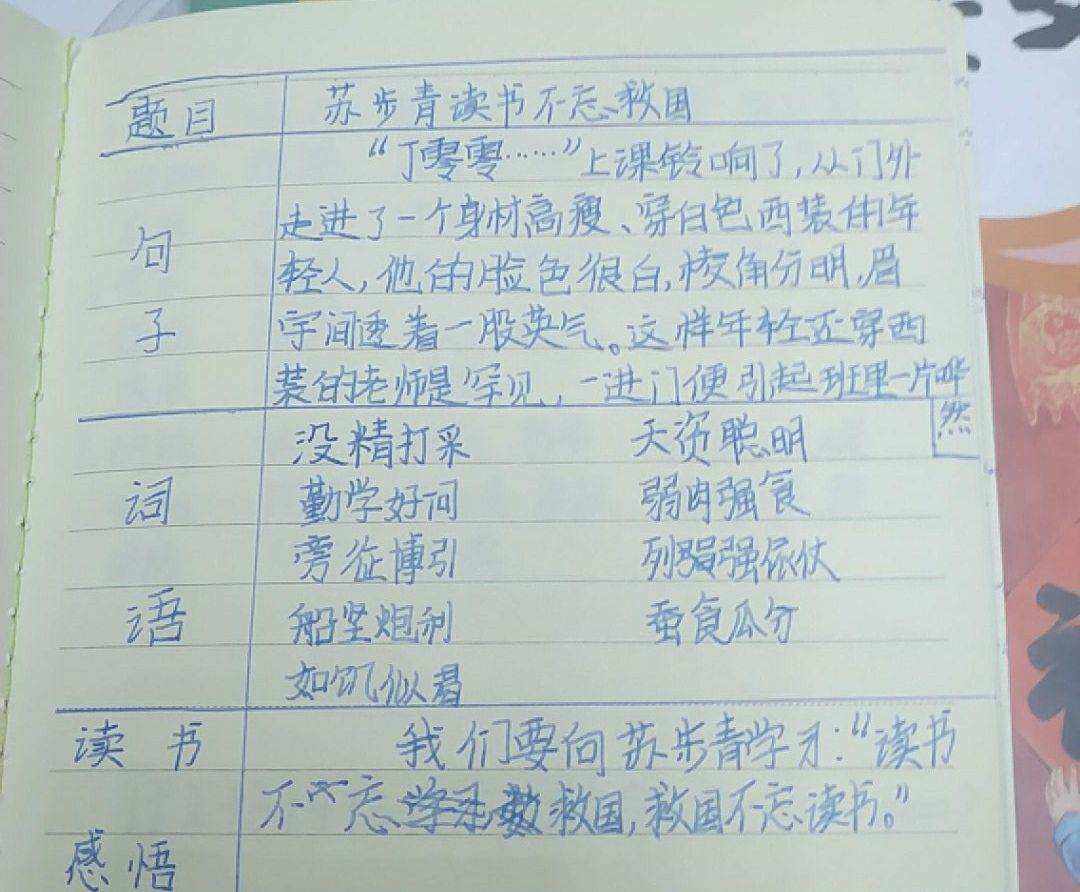 题目 苏步青读书不忘救国
“丁零零……”上课铃响了,从门外
走进了一个身材高瘦、穿白色西装的年
轻人,他的脸色很白,棱角分明,眉
宇间透着一股英气。这样年轻还穿西
装的老师是罕见,一进门便引起班里一片哗
然
句子
没精打采 天资聪明
词 勤学好问 弱肉强食
旁征博引 列强依仗
语 船坚炮利 蚕食瓜分
如饥似
读书 我们要向苏步青学习:“读书
不忘救国,救国不忘读书。”
感悟